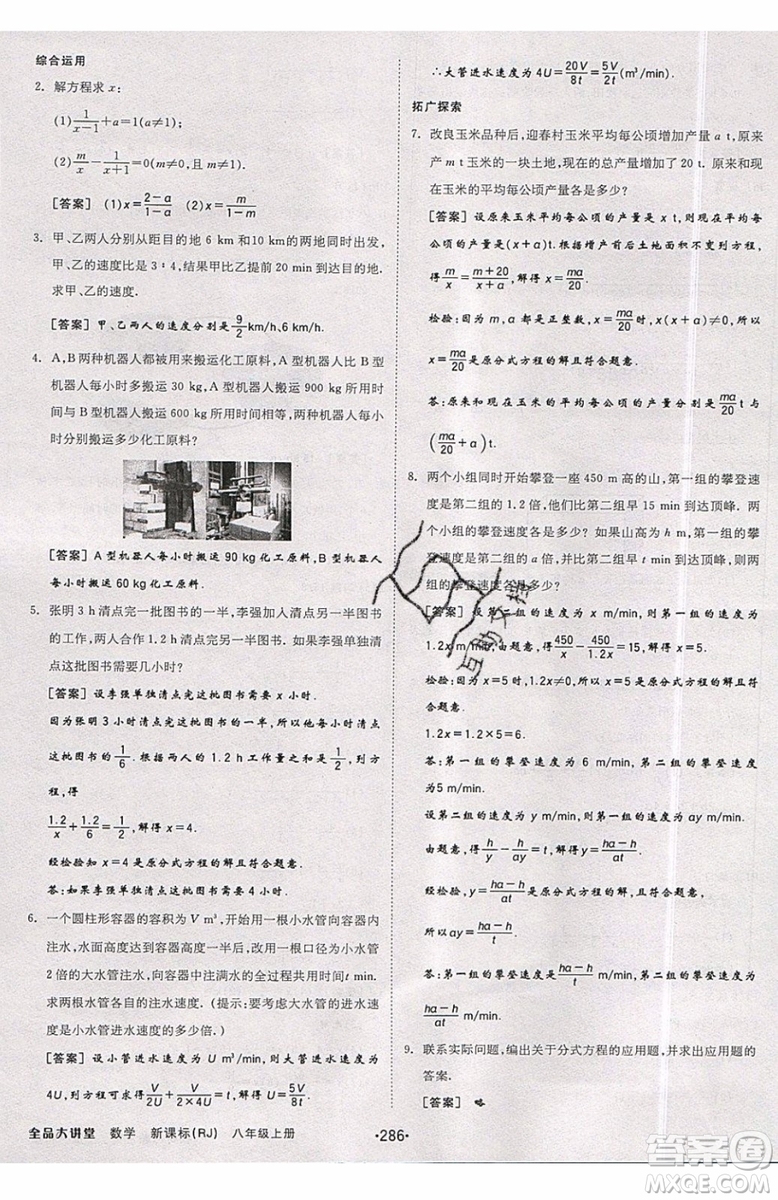 综合运用
2. 解方程求 x：
(1) 1/(x-1)+a=1(a≠1)；
(2) m/x-1/(x+1)=0(m≠0,m≠1).
[答案] (1)x=(2-a)/(1-a) (2)x=m/(1-m)
3. 甲、乙两人分别从距目的地 6 km 和10 km的两地同时出发，
甲、乙的速度比是 3：4，结果甲比乙提前 20 min 到达目的地.
求甲、乙的速度.
[答案] 甲、乙两人的速度分别是 9/2 km/h,6 km/h.
4. A,B 两种机器人都被用来搬运化工原料，A 型机器人比 B 型
机器人每小时多搬运 30 kg,A 型机器人搬运 900 kg 所用时
间与 B 型机器人搬运 600 kg 所用时间相等，两种机器人每小
时分别搬运多少化工原料？
[答案] A 型机器人每小时搬运 90 kg 化工原料，B 型机器人每
小时搬运 60 kg 化工原料.
5. 张明 3 h 清点完一批图书的一半，李强加入清点另一半图书
的工作，两人合作 1.2 h 清点完另一半图书. 如果李强单独清
点这批图书需要几小时？
[答案] 设李强单独清点完这批图书需要 x 小时.
因为张明 3 小时清点完这批图书的一半，所以他一小时清点
这批图书的 1/6. 根据两人 1.2 h 工作量是总量的 1/2，得到方
程：
1.2/x+1.2/6=1/2，解得 x=4.
经检验知 x=4 是原分式方程的解且符合题意.
答：如果李强单独清点这批图书需要 4 小时.
6. 一个圆柱形容器的容积为 V m³,开始用一根小水管向容器内
注水，水面高度达到容器高度一半后，改用一根口径为小水管
2 倍的大水管注水，向容器中注满水的全过程共用时间t min.
求两根水管各自注水速度.(提示：要考虑大水管的进水速度
是小水管进水速度的多少倍.)
[答案] 设小水管进水速度为 U m³/min，则大水管进水速度为
4U,则方程可求出 V/2U+V/8U=t(t≠0),U=5V/8t
∴大管进水速度为 4U=20V/8t=5V/2t(m³/min).
拓广探索
7. 改良玉米品种后，迎春村玉米平均每公顷增加产量 a t，原来
产 m t 玉米的一块土地，现在的总产量增加了 20 t. 原来和现
在玉米的平均每公顷产量各是多少？
[答案] 设原来玉米平均每公顷的产量为 x t，则现在平均每
公顷的产量为(x+a)t. 根据增产前后土地面积不变列方程，
得 m/x=(m+20)/(x+a)，解得 x=ma/20.
检验：因为 m,a 都是正整数，x=ma/20 时，x(x+a)≠0，所以
x=ma/20 是原分式方程的解且符合题意.
答：原来和现在玉米的平均每公顷产量分别为 ma/20 t 与
(ma/20+a) t.
8. 两个小组同时开始攀登一座 450 m 高的山，第一组的攀登速
度是第二组的 1.2 倍，他们比第二组早 15 min 到达顶峰. 两
个小组的攀登速度各是多少？如果山高为 h m,第一组的攀
登速度是第二组的 a 倍，并比第二组早 t min 到达顶峰，则两
组的攀登速度各是多少？
[答案] 设第二组的攀登速度为 x m/min，则第一组的速度为
1.2x m/min. 由题意，得 450/x-450/1.2x=15，解得 x=5.
检验：当 x=5 时，1.2x≠0，所以 x=5 是原方程的解且符合题意.
1.2x=1.2×5=6.
答：第一组的攀登速度为 6 m/min，第二组的攀登速度
为5 m/min.
设第二组的速度为 y m/min，则第一组的速度为 ay m/min.
由题意，得 h/y-h/ay=t. 解得 y=(ha-h)/at.
经检验，y=(ha-h)/at 是原分式方程的解且符合题意.
所以 ay=(ha-h)/t.
答：第一组的攀登速度为 (ha-h)/t m/min，第二组的攀登速度为
(ha-h)/at m/min.
9. 联系实际问题，编出关于分式方程的应用题，并求出应用题的
答案.
[答案] 略
全品大讲堂 数学 新课标(RJ) 八年级上册
·286·
答案圈
MXQE.COM